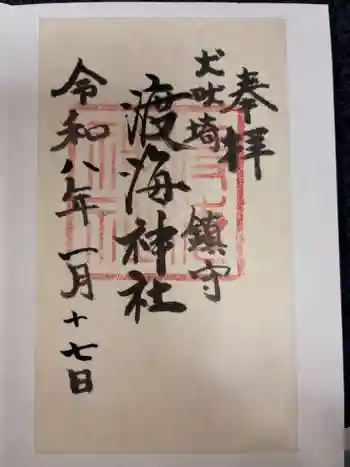 奉拝
犬吠埼 鎮守
渡海神社
令和八年一月十七日